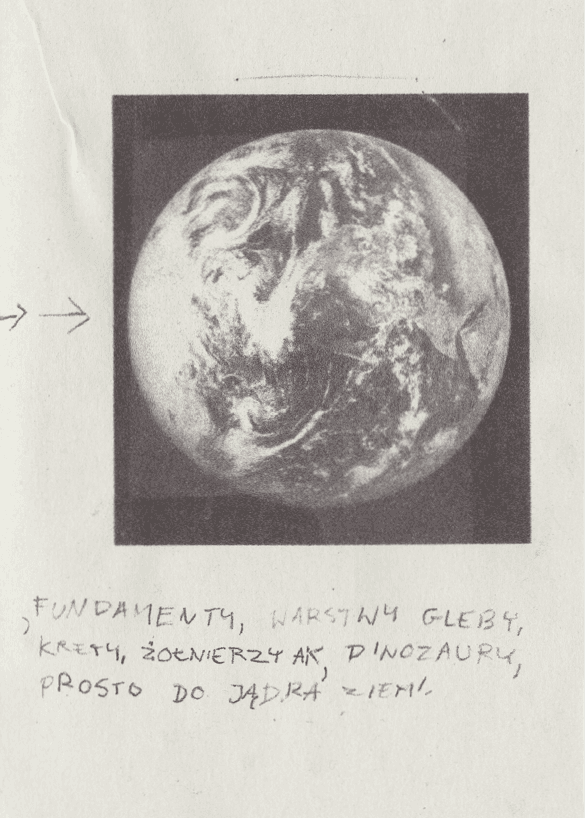 FUNDAMENTY, WARSTWY GLEBY,
KRETY, ŻOŁNIERZY AK, DINOZAURY,
PROSTO DO JĄDRA ZIEMI.